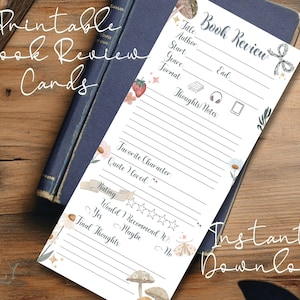 Printable
Book Review
Cards
Book Review
Title
Author
Start
End
Genre
Format
Thoughts/Notes
Favorite Character
Quote I Loved
Rating
Would I Recommend It
Yes Maybe No
Final Thoughts
Instant
Download